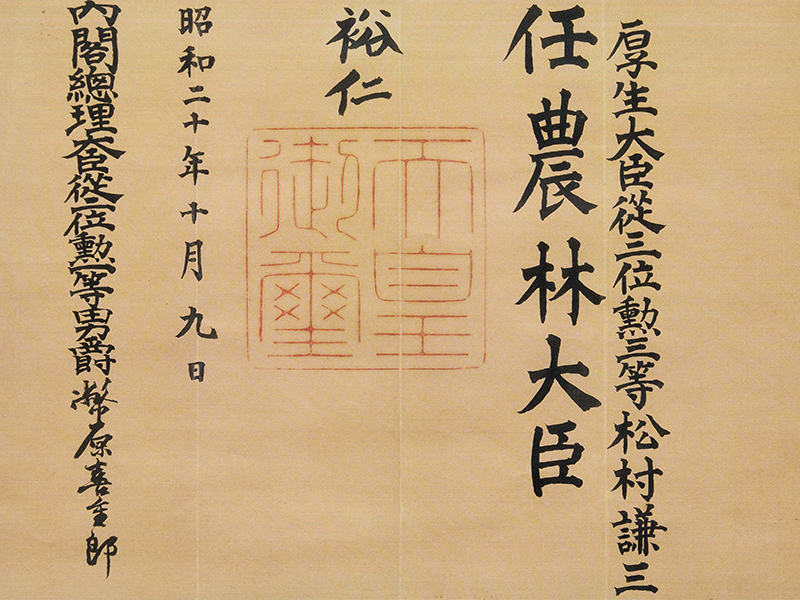 厚生大臣從三位勲三等松村謙三
任農林大臣
裕仁
天皇御璽
昭和二十年十月九日
內閣總理大臣從二位勲一等男爵幣原喜重郎